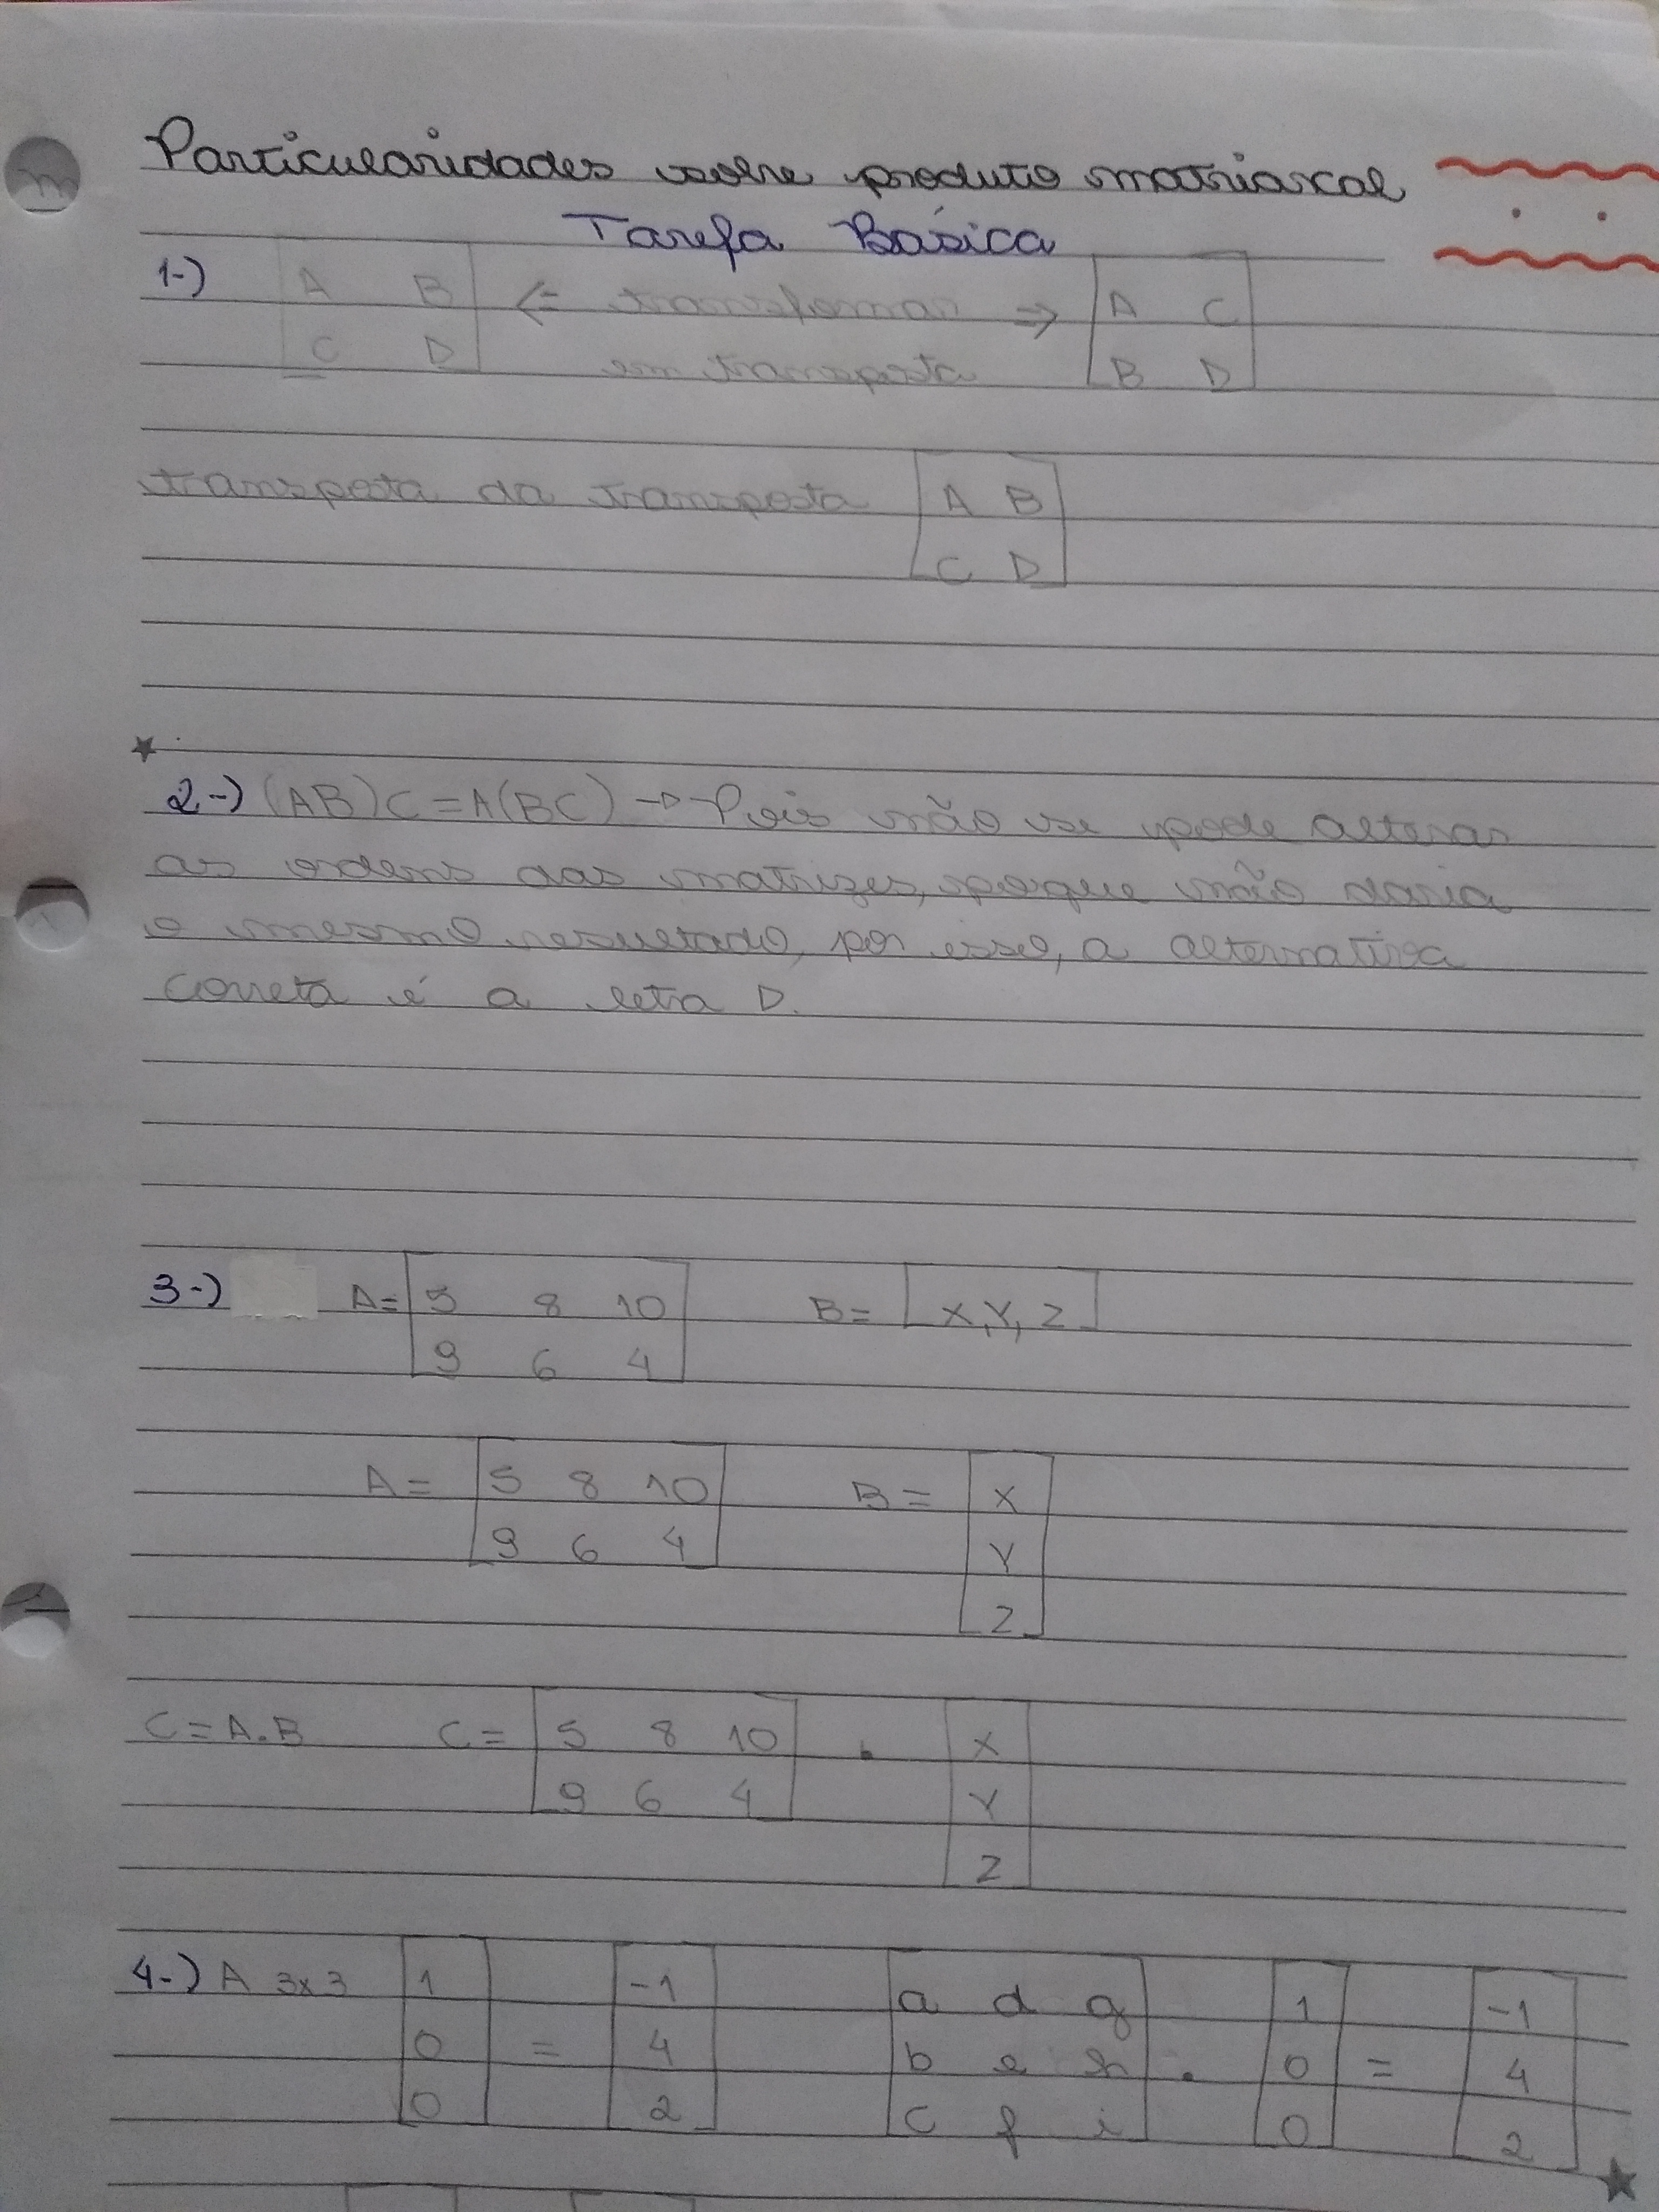 Particularidades sobre produto matriarcal
Tarefa Básica
1-) A B <= transformar => A C
C D em transposta B D
transposta da transposta A B
C D
2-) (AB)C = A(BC) -> Pois não se pode alterar
as ordens das matrizes, porque não daria
o mesmo resultado, por isso, a alternativa
correta é a letra D.
3-) A= 5 8 10 B= X, Y, Z
9 6 4
A= 5 8 10 B= X
9 6 4 Y
Z
C=A.B C= 5 8 10 . X
9 6 4 Y
Z
4-) A 3x3 1 -1 a d g 1 -1
0 = 4 b e h . 0 = 4
0 2 c f i 0 2